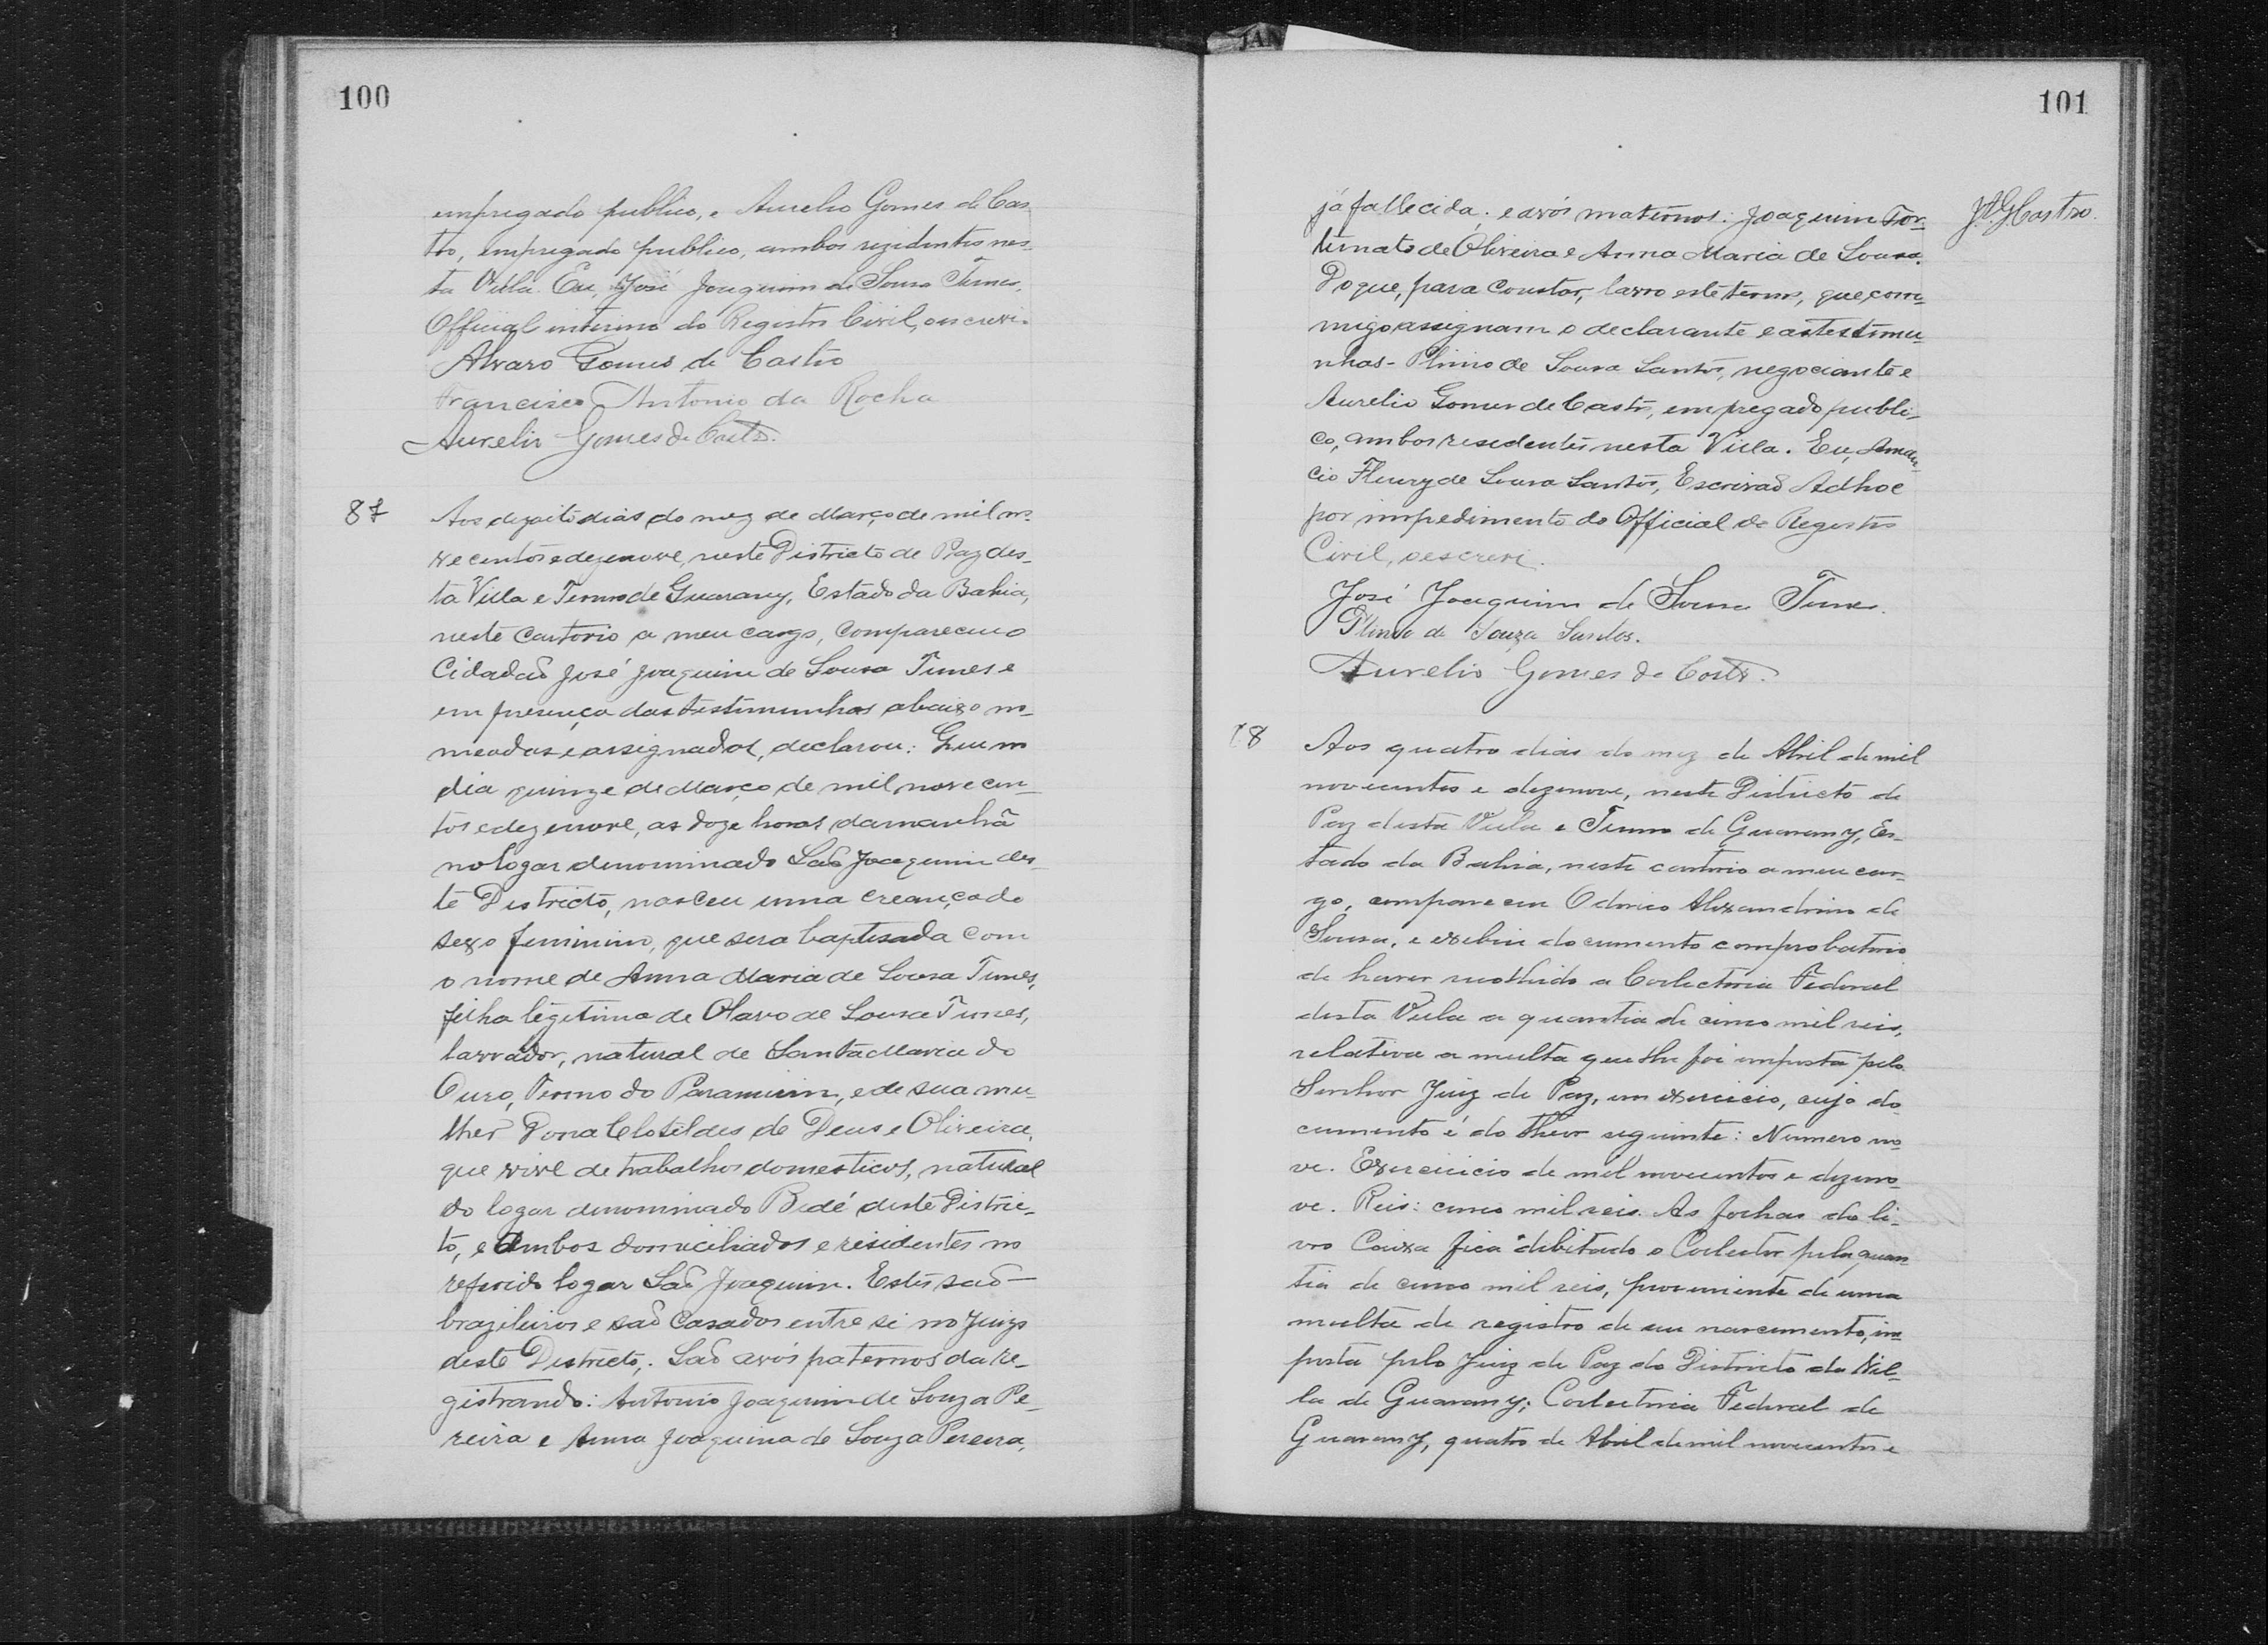 100
empregado publico, e Aurelio Gomes de Cas-
tro, empregado publico, ambos rezidentes nes-
ta Villa. Eu, José Joaquim de Sousa Tunes,
Official interino do Registro Civil, o escrevi.
Alvaro Gomes de Castro
Francisco Antonio da Rocha
Aurelio Gomes de Castro.
87
Aos dezoito dias do mez de Março de mil no-
vecentos e dezenove, neste Districto de Paz des-
ta Villa e Termo de Guarany, Estado da Bahia,
neste Cartorio a meu cargo, compareceu o
Cidadaõ José Joaquim de Sousa Tunes e
em presença das testimunhas abaixo no-
meadas e assignados, declarou: Que no
dia quinze de Março de mil novecen-
tos e dezenove, as doze horas da manhã
no logar denominado Saõ Joaquim des-
te Districto, nasceu uma creança do
sexo feminino, que sera baptisada com
o nome de Anna Maria de Sousa Tunes,
filha legitima de Olavo de Sousa Tunes,
lavrador, natural de Santa Maria do
Ouro, Termo do Paramirim, e de sua mu-
lher Dona Clotildes de Deus e Oliveira,
que vive de trabalhos domesticos, natural
do logar denominado Bedé deste Distric-
to, e Ambos domiciliados e residentes no
referido logar Saõ Joaquim. Estes saõ
brazileiros e saõ Casados entre si no Juizo
deste Districto,. Saõ avós paternos da re-
gistrando: Antonio Joaquim de Souza Pe-
reira e Anna Joaquina de Souza Pereira,
101
J. A. G. Castro.
já fallecida; e avós maternos: Joaquim For-
tunato de Oliveira e Anna Maria de Sousa.
Do que, para constar, lavro este termo, que com-
migo assignam o declarante e as testimu-
nhas - Plinio de Sousa Santos, negociante e
Aurelio Gomes de Castro, empregado publi-
co, ambos residentes nesta Villa. Eu, Aman-
cio Fleury de Sousa Santos, Escrivaõ Adhoc
por impedimento do Official do Registro
Civil, o escrevi.
José Joaquim de Sousa Tunes.
Plinio de Souza Santos.
Aurelio Gomes de Castro.
8
Aos quatro dias do mez de Abril de mil
novecentos e dezenove, neste Districto de
Paz desta Villa e Termo de Guarany, Es-
tado da Bahia, neste cartorio a meu car-
go, compareceu Odorico Alexandrino de
Sousa, e exebiu documento comprobatorio
de haver recolhido a Collectoria Federal
desta Villa a quantia de cinco mil reis,
relativa a multa que lhe foi imposta pelo
Senhor Juiz de Paz, em exercicio, cujo do-
cumento é do theor seguinte: Numero no-
ve. Exercicicio de mil novecentos e dezeno-
ve. Reis: cinco mil reis. As folhas do li-
vro Caixa fica debitado o Collector pela quan-
tia de cinco mil reis, proveniente de uma
multa de registro de um nascimento, im-
posta pelo Juiz de Paz do Districto da Vil-
la de Guarany; Collectoria Federal de
Guarany, quatro de Abril de mil novecentos e